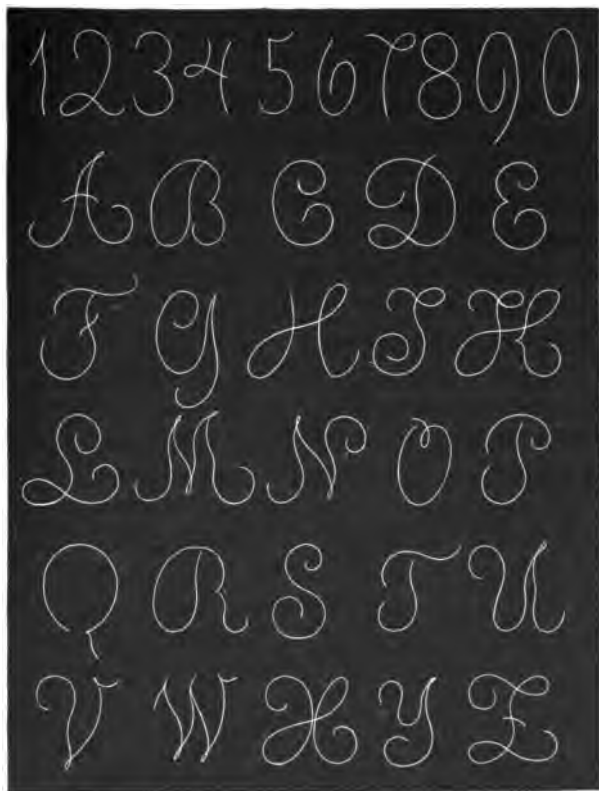 1 2 3 4 5 6 7 8 9 0
A B C D E
F G H I K
L M N O P
Q R S T U
V W X Y Z